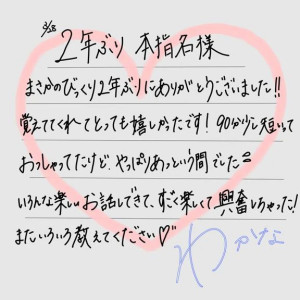 2/28
2年ぶり 本指名様
まさかのびっくり2年ぶりにありがとうございました!!
覚えててくれてとっても嬉しかったです! 90分少し短いって
おっしゃってたけど、やっぱりあっという間でした
いろんな楽しいお話しできて、すごく楽しくて興奮しちゃった!
またいろいろ教えてください♡
わかな